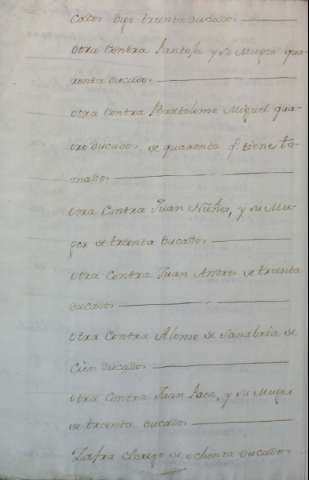 treinta ducados
otra Contra Pantoja y su Muger qua-
renta ducados
otra Contra Bartolome Miguel qua-
tro ducados, de quarenta q. tiene to-
mados
otra Contra Juan Nuñez, y su Mu-
ger de treinta ducados
otra Contra Juan Andres de treinta
ducados
otra Contra Alonso de Sanabria de
Cien ducados
otra Contra Juan Paez, y su Muger
de treinta ducados
Zafra Clerigo de ochenta ducados